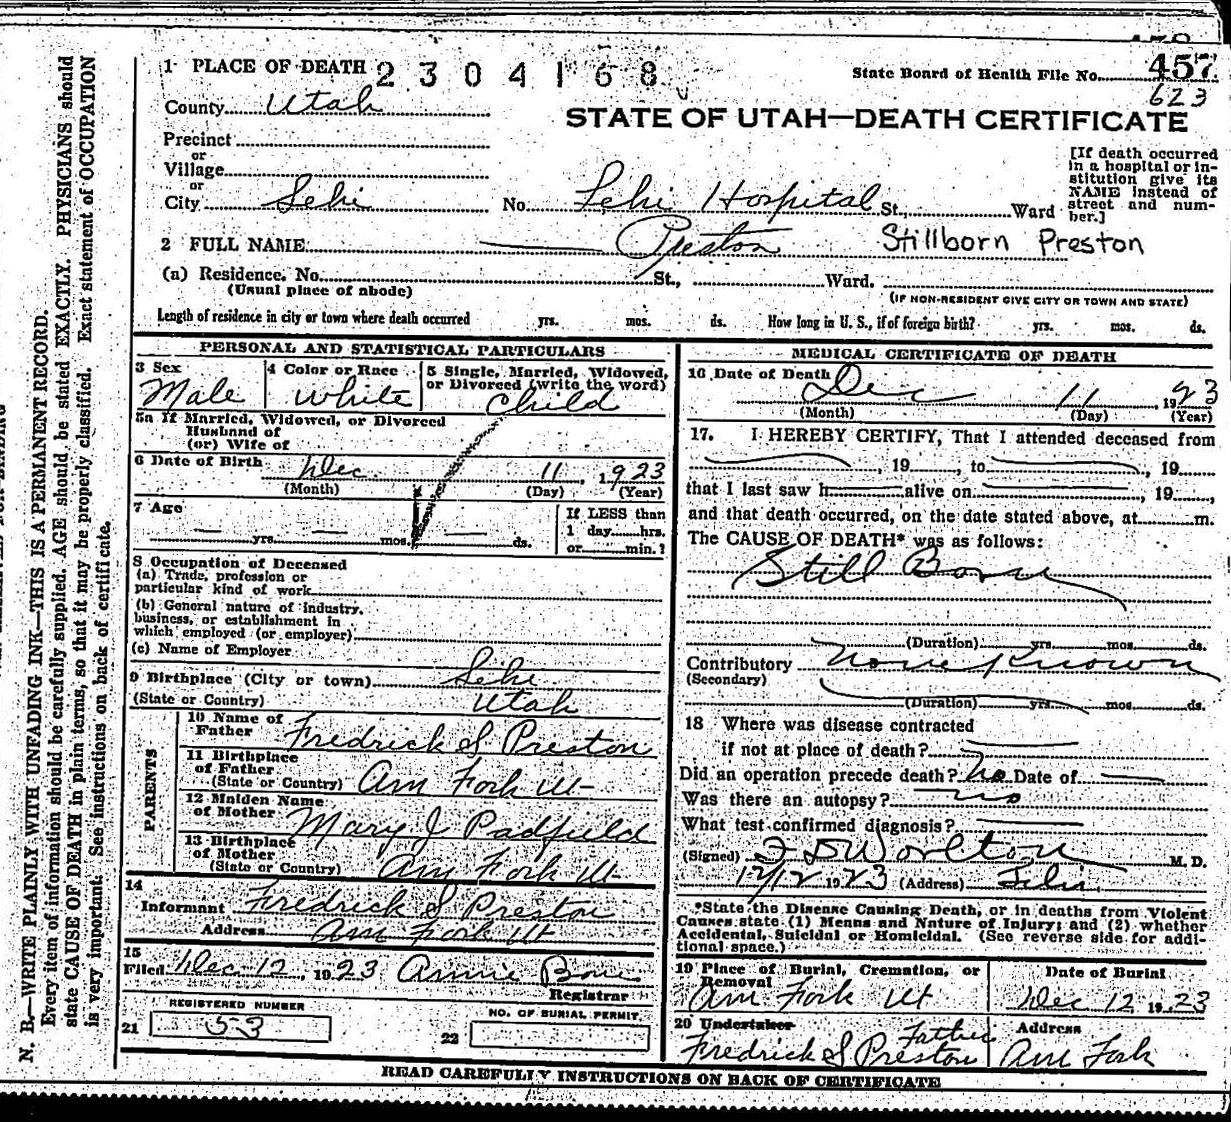 1 PLACE OF DEATH 2304168
State Board of Health File No. 457
623
County Utah
STATE OF UTAH—DEATH CERTIFICATE
Precinct
or
Village
or
City Lehi No. Lehi Hospital St., Ward
[If death occurred
in a hospital or in-
stitution give its
NAME instead of
street and num-
ber.]
2 FULL NAME Preston Stillborn Preston
(a) Residence. No. St., Ward.
(Usual place of abode) (IF NON-RESIDENT GIVE CITY OR TOWN AND STATE)
Length of residence in city or town where death occurred yrs. mos. ds. How long in U. S., if of foreign birth? yrs. mos. ds.
PERSONAL AND STATISTICAL PARTICULARS
3 Sex Male
4 Color or Race White
5 Single, Married, Widowed,
or Divorced (write the word)
Child
5a If Married, Widowed, or Divorced
Husband of
(or) Wife of
6 Date of Birth Dec 11, 1923
(Month) (Day) (Year)
7 Age
yrs. mos. ds.
If LESS than
1 day hrs.
or min.?
8 Occupation of Deceased
(a) Trade, profession or
particular kind of work
(b) General nature of industry,
business, or establishment in
which employed (or employer)
(c) Name of Employer
9 Birthplace (City or town) Lehi
(State or Country) Utah
PARENTS
10 Name of
Father Fredrick S Preston
11 Birthplace
of Father
(State or Country) Am Fork Ut
12 Maiden Name
of Mother Mary J Padfield
13 Birthplace
of Mother
(State or Country) Am Fork Ut
14
Informant Fredrick S Preston
Address Am Fork Ut
15
Filed Dec 12, 1923 Annie
Registrar
REGISTERED NUMBER
21 53
NO. OF BURIAL PERMIT.
22
MEDICAL CERTIFICATE OF DEATH
16 Date of Death Dec 11, 1923
(Month) (Day) (Year)
17. I HEREBY CERTIFY, That I attended deceased from
, 19 , to , 19
that I last saw h alive on , 19 ,
and that death occurred, on the date stated above, at m.
The CAUSE OF DEATH* was as follows:
Still Born
(Duration) yrs. mos. ds.
Contributory None Known
(Secondary)
(Duration) yrs. mos. ds.
18 Where was disease contracted
if not at place of death?
Did an operation precede death? No Date of
Was there an autopsy? No
What test confirmed diagnosis?
(Signed) Worlton M. D.
12/12 1923 (Address) Lehi
*State the Disease Causing Death, or in deaths from Violent
Causes state (1) Means and Nature of Injury; and (2) whether
Accidental, Suicidal or Homicidal. (See reverse side for addi-
tional space.)
19 Place of Burial, Cremation, or
Removal
Am Fork Ut
Date of Burial
Dec 12 1923
20 Undertaker Father
Fredrick S Preston
Address
Am Fork
READ CAREFULLY INSTRUCTIONS ON BACK OF CERTIFICATE
N. B.—WRITE PLAINLY WITH UNFADING INK—THIS IS A PERMANENT RECORD.
Every item of information should be carefully supplied. AGE should be stated EXACTLY. PHYSICIANS should
state CAUSE OF DEATH in plain terms, so that it may be properly classified. Exact statement of OCCUPATION
is very important. See instructions on back of certificate.